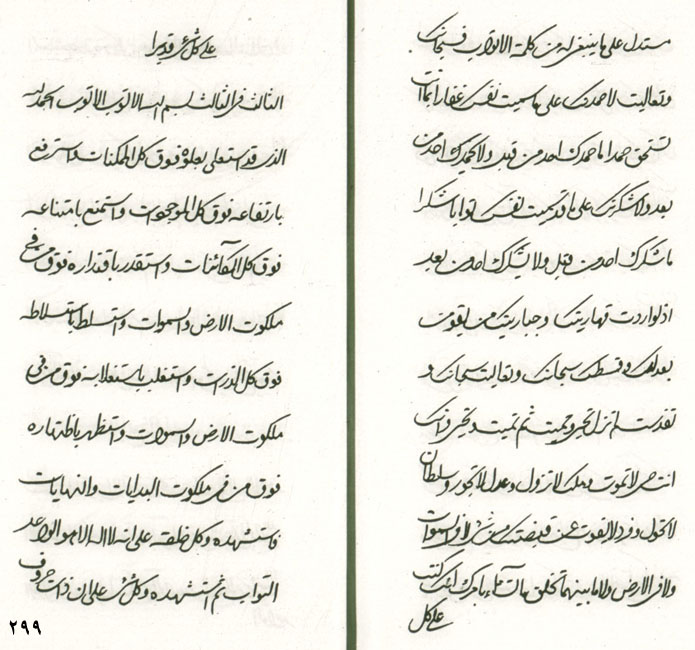 مستدل علی ما ینبغی له من کلمة الاتواب فسبحانک
وتعالیت لاحمدنک علی ما سمیت نفسک غفارا بما انت
تستحق حمدا ما حمدک احد من قبل ولا یحمدک احد من
بعد ولاشکرنک علی ما قد سمیت نفسک توابا شکرا
ما شکرک احد من قبل ولا یشکرک احد من بعد
اذ لو اردت قهاریتک وجباریتک من یقومن
بعدلک وقسطک سبحانک وتعالیت سبحانک و
تقدست لم تزل تحیی وتمیت ثم تمیت وتحیی وانک
انت حی لا تموت وملک لا تزول وعدل لا تجور وسلطان
لا تحول وفرد لا یفوت عن قبضتک من شیء لا فی السموات
ولا فی الارض ولا ما بینهما تخلق ما تشاء بامرک انک کنت
علی کل
علی کل شیء قدیرا
الثالث فی الثالث بسم الله الاتوب الاتوب الحمد لله
الذی قد استعلی بعلوه فوق کل الممکنات واسترفع
بارتفاعه فوق کل الموجودات واستمنع بامتناعه
فوق کل الکائنات واستقدر باقتداره فوق من فی
ملکوت الارض والسموات واستسلط باستلاطه
فوق کل الذرات واستغلب باستغلابه فوق من فی
ملکوت الارض والسموات واستظهر باظتهاره
فوق من فی ملکوت البدایات والنهایات
فاستشهده وکل خلقه علی انه لا اله الا هو الواحد
التواب ثم استشهده وکل شیء علی ان ذات حروف
۲۹۹